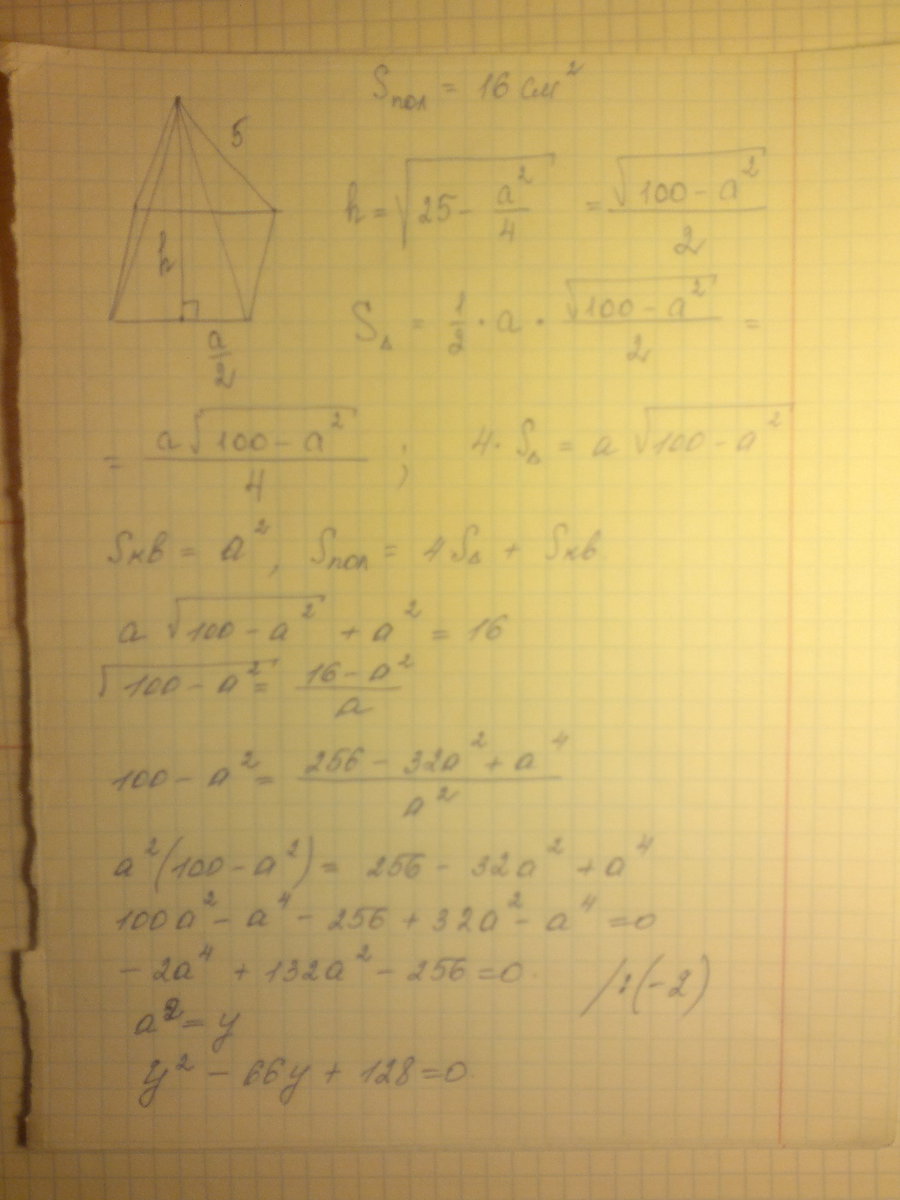 Sпол = 16 см²
5
h = √(25 - a²/4) = √(100 - a²)/2
h
a/2
S△ = 1/2 · a · √(100 - a²)/2 =
= a√(100 - a²)/4 ; 4 · S△ = a √(100 - a²)
Sкв = a², Sпол = 4S△ + Sкв.
a √(100 - a²) + a² = 16
√(100 - a²) = (16 - a²)/a
100 - a² = (256 - 32a² + a⁴)/a²
a²(100 - a²) = 256 - 32a² + a⁴
100a² - a⁴ - 256 + 32a² - a⁴ = 0
- 2a⁴ + 132a² - 256 = 0. /:(-2)
a² = y
y² - 66y + 128 = 0.